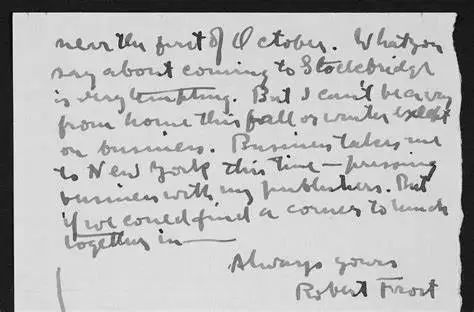 near the first of October. What you
say about coming to Stockbridge
is very tempting. But I can't be away
from home this fall or winter except
on business. Business takes me
to New York this time — pressing
business with my publishers. But
if we could find a corner to lunch
together in —
Always yours
Robert Frost